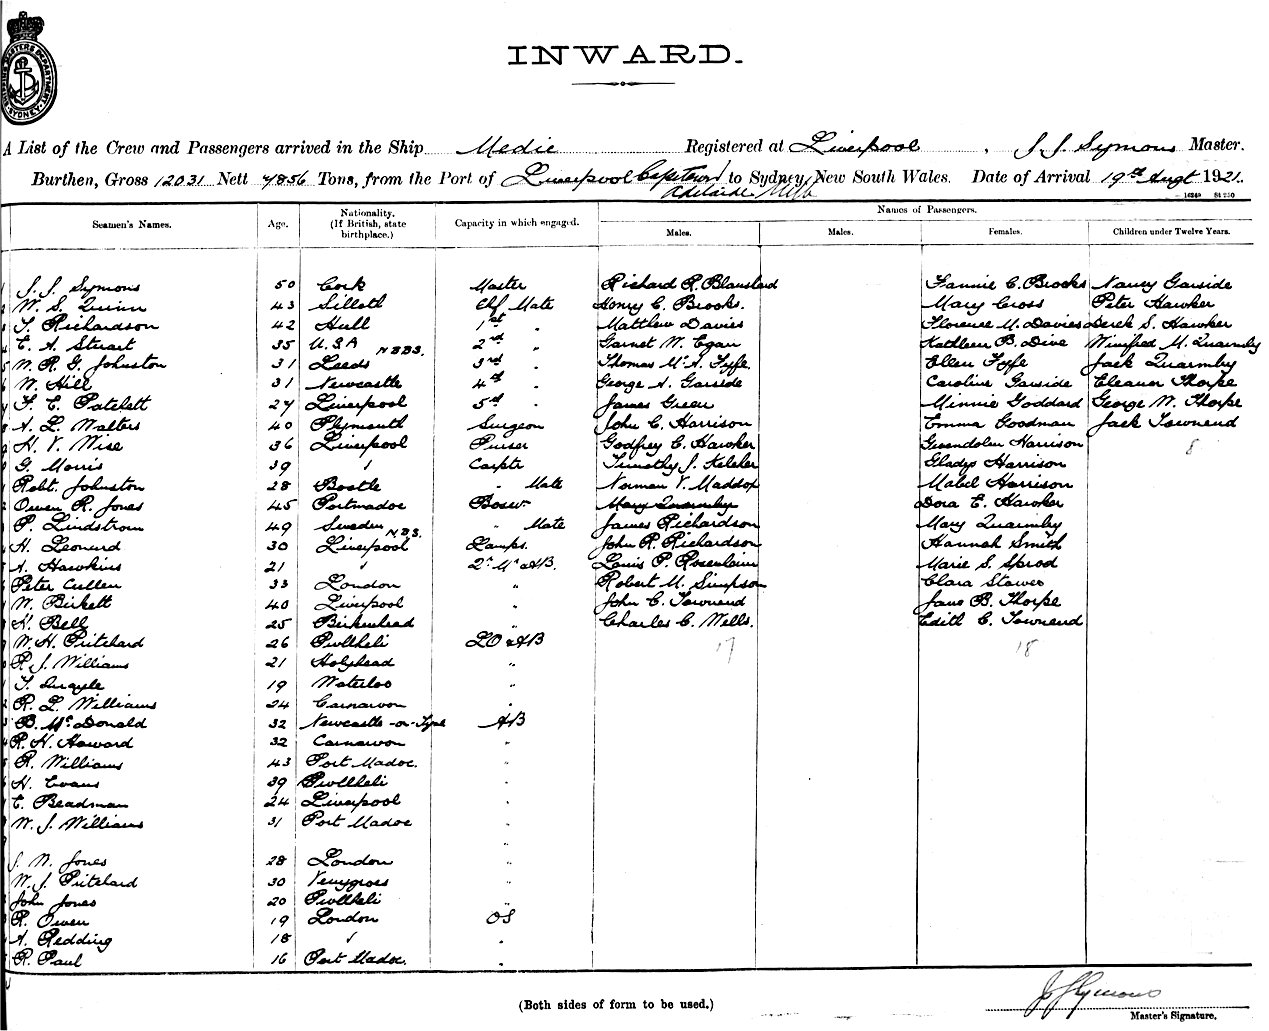 SHIPPING MASTERS DEPARTMENT SYDNEY
INWARD.
A List of the Crew and Passengers arrived in the Ship Medic Registered at Liverpool , J. J. Symons Master.
Burthen, Gross 12031 Nett 7856 Tons, from the Port of Liverpool Capetown to Sydney, New South Wales. Date of Arrival 19th Augt 1921.
Adelaide Melb
Names of Passengers.
Seamen's Names. Age. Nationality. (If British, state birthplace.) Capacity in which engaged. Males. Males. Females. Children under Twelve Years.
J. J. Symons 50 Cork Master Richard R. Blanshard Fannie C. Brooks Nancy Garside
W. S. Quinn 43 Silloth Chf Mate Henry C. Brooks. Mary Cross Peter Hawker
T. Richardson 42 Hull 1st " Matthew Davies Florence M. Davies Derek S. Hawker
E. A. Stuart 35 U.S.A NBBS. 2nd " Garnet W. Egan Kathleen B. Dive Winifred M. Quarmby
W. R. G. Johnston 31 Leeds 3rd " Thomas Mc A. Fyfe Ellen Fyfe Jack Quarmby
W. Hill 31 Newcastle 4th " George A. Garside Caroline Garside Eleanor Thorpe
F. C. Patchett 27 Liverpool 5th " James Green Minnie Goddard George W. Thorpe
A. L. Walters 40 Plymouth Surgeon John C. Harrison Emma Goodman Jack Townend
H. V. Wise 36 Liverpool Purser Godfrey C. Hawker Gwendolen Harrison 8
G. Morris 39 " Carptr Timothy J. Keleher Gladys Harrison
Robt. Johnston 28 Bootle " Mate Norman V. Maddox Mabel Harrison
Owen R. Jones 45 Portmadoc Bosw. Mary Quarmby Dora E. Hawker
P. Lindstrom 49 Sweden NBS. " Mate James Richardson Mary Quarmby
H. Leonard 30 Liverpool Lamps. John R. Richardson Hannah Smith
A. Hawkins 21 " 2nd Mr &AB. Louis P. Rosenhain Marie S. Sprod
Peter Cullen 33 London " Robert M. Simpson Clara Stawes
W. Birkett 40 Liverpool " John C. Townend Jane B. Thorpe
H. Bell 25 Birkenhead " Charles C. Wells. Edith C. Townend
W. H. Pritchard 26 Pwllheli LO &AB 17 18
R. J. Williams 21 Holyhead "
T. Quayle 19 Waterloo "
R. L. Williams 24 Carnarvon "
B. McDonald 32 Newcastle-on-Tyne AB
R. H. Howard 32 Carnarvon "
R. Williams 43 Port Madoc. "
H. Evans 39 Pwllheli "
E. Beadman 24 Liverpool "
W. J. Williams 31 Port Madoc "
J. W. Jones 28 London "
W. J. Pritchard 30 Penygroes "
John Jones 20 Pwllheli "
R. Owen 19 London OS
A. Redding 18 " "
R. Paul 16 Port Madoc. "
J J Symons
(Both sides of form to be used.)
Master's Signature.